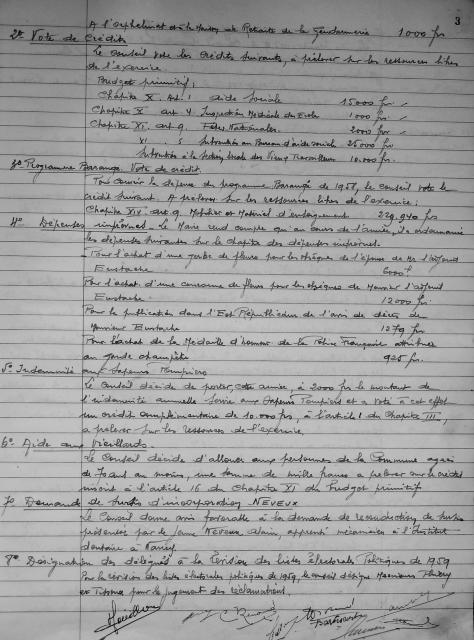 3
A l'orphelinat et à la Maison de Retraite de la Gendarmerie 1000 frs
2° Vote de Crédits
Le Conseil vote les crédits suivants, à prélever sur les ressources libres
de l'exercice.
Budget primitif:
Chapitre X. Art. 1 aide sociale 15000 frs
Chapitre X art 4 Inspection Médicale des Ecoles 1000 frs
Chapitre XI. art 9. Fêtes Nationales. 2000 frs
XI 5 Subvention au Bureau d'aide sociale 25000 frs
Subvention à la Section locale des Vieux Travailleurs 10.000 frs.
3° Programme Barangé. Vote de crédit.
Pour couvrir la dépense du programme Barangé de 1958, le Conseil vote le
crédit suivant. A prélever sur les ressources libres de l'exercice:
Chapitre XIV art 9. Mobilier et Matériel d'enseignement 229.940 frs
4° Dépenses imprévues. Le Maire rend compte qu'au cours de l'année, il a ordonnancé
les dépenses suivantes sur le chapitre des dépenses imprévues.
Pour l'achat d'une gerbe de fleurs pour les obsèques de l'épouse de Mr l'adjoint
Eustache. 6000 f
Pour l'achat d'une couronne de fleurs pour les obsèques de Monsieur l'adjoint
Eustache. 12000 fr.
Pour la publication dans l'Est Républicain de l'avis de décès de
Monsieur Eustache 1279 frs
Pour l'achat de la Médaille d'honneur de la Police Française attribuée
au garde champêtre 925 frs.
5° Indemnité aux Sapeurs Pompiers
Le Conseil décide de porter, cette année, à 2000 frs le montant de
l'indemnité annuelle servie aux Sapeurs Pompiers et a voté à cet effet
un crédit complémentaire de 10.000 frs, à l'article 1 du Chapitre III,
à prélever sur les ressources de l'exercice.
6° Aide aux Vieillards.
Le Conseil décide d'allouer aux personnes de la Commune agées
de 70 ans au moins, une somme de mille francs à prélever sur le crédit
inscrit à l'article 16 du Chapitre XI du Budget primitif
7° Demande de sursis d'incorporation NEVEUX
Le Conseil donne avis favorable à la demande de reconduction de sursis
présentée par le jeune Neveux Alain, apprenti mécanicien à l'Institut
dentaire à Nancy.
8° Désignation des délégués à la Révision des listes électorales Politiques de 1959
Pour la révision des listes électorales politiques de 1959, le conseil désigne Messieurs Thiéry
et pour le jugement des réclamations.